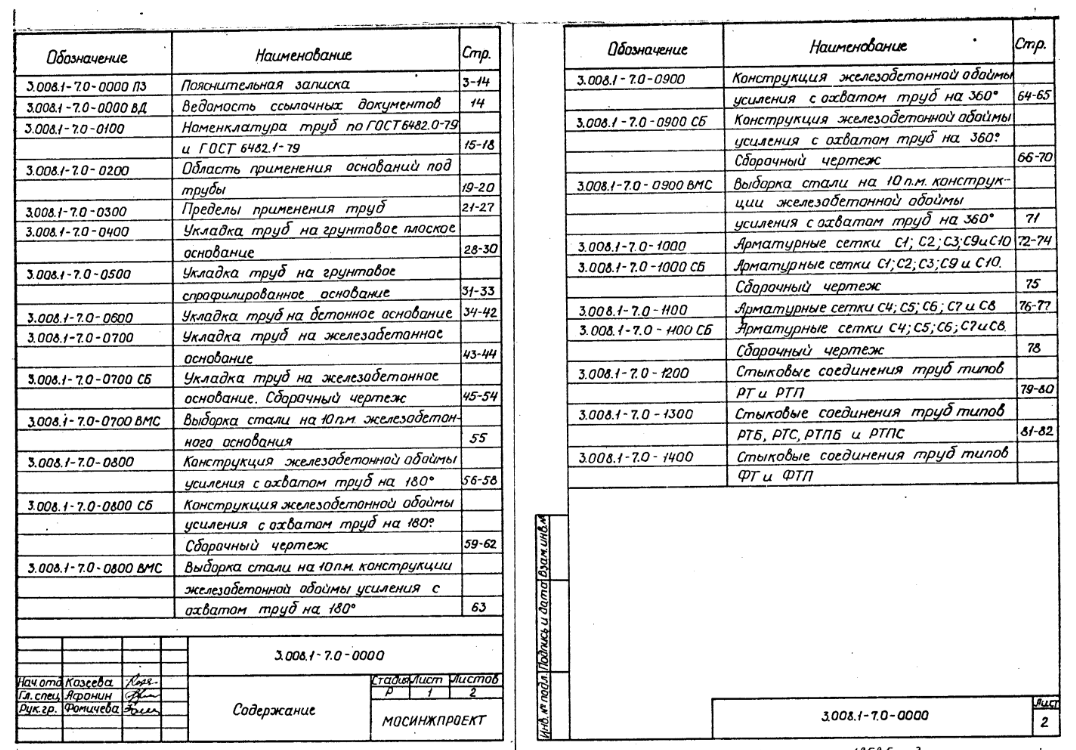 Обозначение Наименование Стр.
3.008.1-7.0-0000 ПЗ Пояснительная записка 3-14
3.008.1-7.0-0000 ВД Ведомость ссылочных документов 14
3.008.1-7.0-0100 Номенклатура труб по ГОСТ 6482.0-79
и ГОСТ 6482.1-79 15-18
3.008.1-7.0-0200 Область применения оснований под
трубы 19-20
3.008.1-7.0-0300 Пределы применения труб 21-27
3.008.1-7.0-0400 Укладка труб на грунтовое плоское
основание 28-30
3.008.1-7.0-0500 Укладка труб на грунтовое
спрофилированное основание 31-33
3.008.1-7.0-0600 Укладка труб на бетонное основание 34-42
3.008.1-7.0-0700 Укладка труб на железобетонное
основание 43-44
3.008.1-7.0-0700 СБ Укладка труб на железобетонное
основание. Сборочный чертеж 45-54
3.008.1-7.0-0700 ВМС Выборка стали на 10 п.м. железобетон-
ного основания 55
3.008.1-7.0-0800 Конструкция железобетонной обоймы
усиления с охватом труб на 180° 56-58
3.008.1-7.0-0800 СБ Конструкция железобетонной обоймы
усиления с охватом труб на 180°.
Сборочный чертеж 59-62
3.008.1-7.0-0800 ВМС Выборка стали на 10 п.м. конструкции
железобетонной обоймы усиления с
охватом труб на 180° 63
3.008.1-7.0-0000
Нач.отд Козеева
Гл. спец. Афонин
Рук.гр. Фомичева
Содержание
Стадия Лист Листов
Р 1 2
МОСИНЖПРОЕКТ
Обозначение Наименование Стр.
3.008.1-7.0-0900 Конструкция железобетонной обоймы
усиления с охватом труб на 360° 64-65
3.008.1-7.0-0900 СБ Конструкция железобетонной обоймы
усиления с охватом труб на 360°.
Сборочный чертеж 66-70
3.008.1-7.0-0900 ВМС Выборка стали на 10 п.м. конструк-
ции железобетонной обоймы
усиления с охватом труб на 360° 71
3.008.1-7.0-1000 Арматурные сетки С1; С2; С3; С9 и С10 72-74
3.008.1-7.0-1000 СБ Арматурные сетки С1; С2; С3; С9 и С10.
Сборочный чертеж 75
3.008.1-7.0-1100 Арматурные сетки С4; С5; С6; С7 и С8 76-77
3.008.1-7.0-1100 СБ Арматурные сетки С4; С5; С6; С7 и С8.
Сборочный чертеж 78
3.008.1-7.0-1200 Стыковые соединения труб типов
РТ и РТП 79-80
3.008.1-7.0-1300 Стыковые соединения труб типов
РТБ, РТС, РТПБ и РТПС 81-82
3.008.1-7.0-1400 Стыковые соединения труб типов
ФТ и ФТП
Взам.инв.№
Подпись и дата
Инв. № подл.
3.008.1-7.0-0000
Лист
2